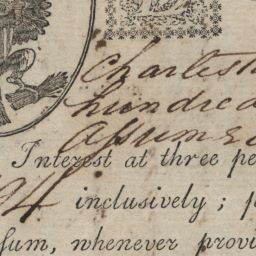 Charlest
hundred
assumed
Interest at three pe
inclusively; p
sum, whenever provi